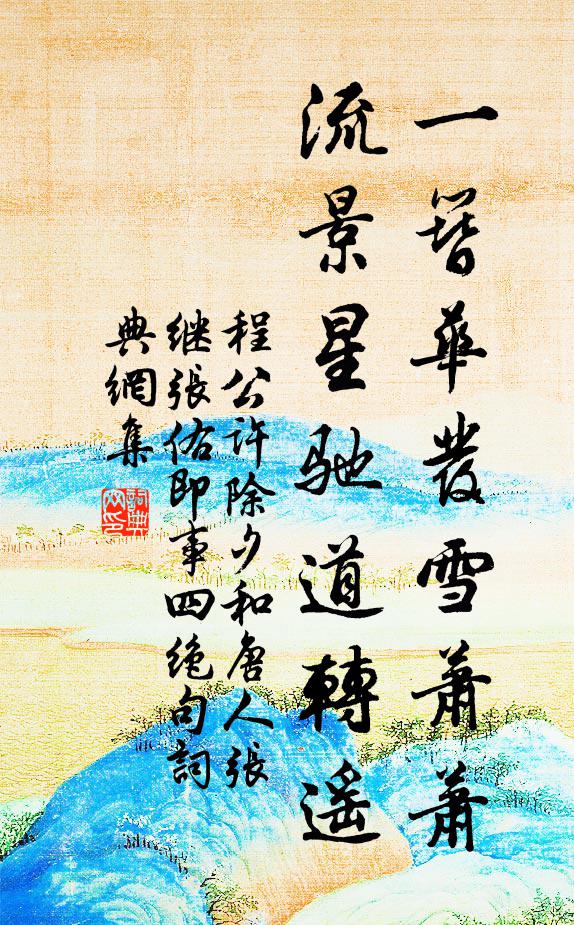 一簪華發雪蕭蕭
流景星馳道轉遥
程公許除夕和唐人張
继張佑即事四绝句詞
典網集
詞典